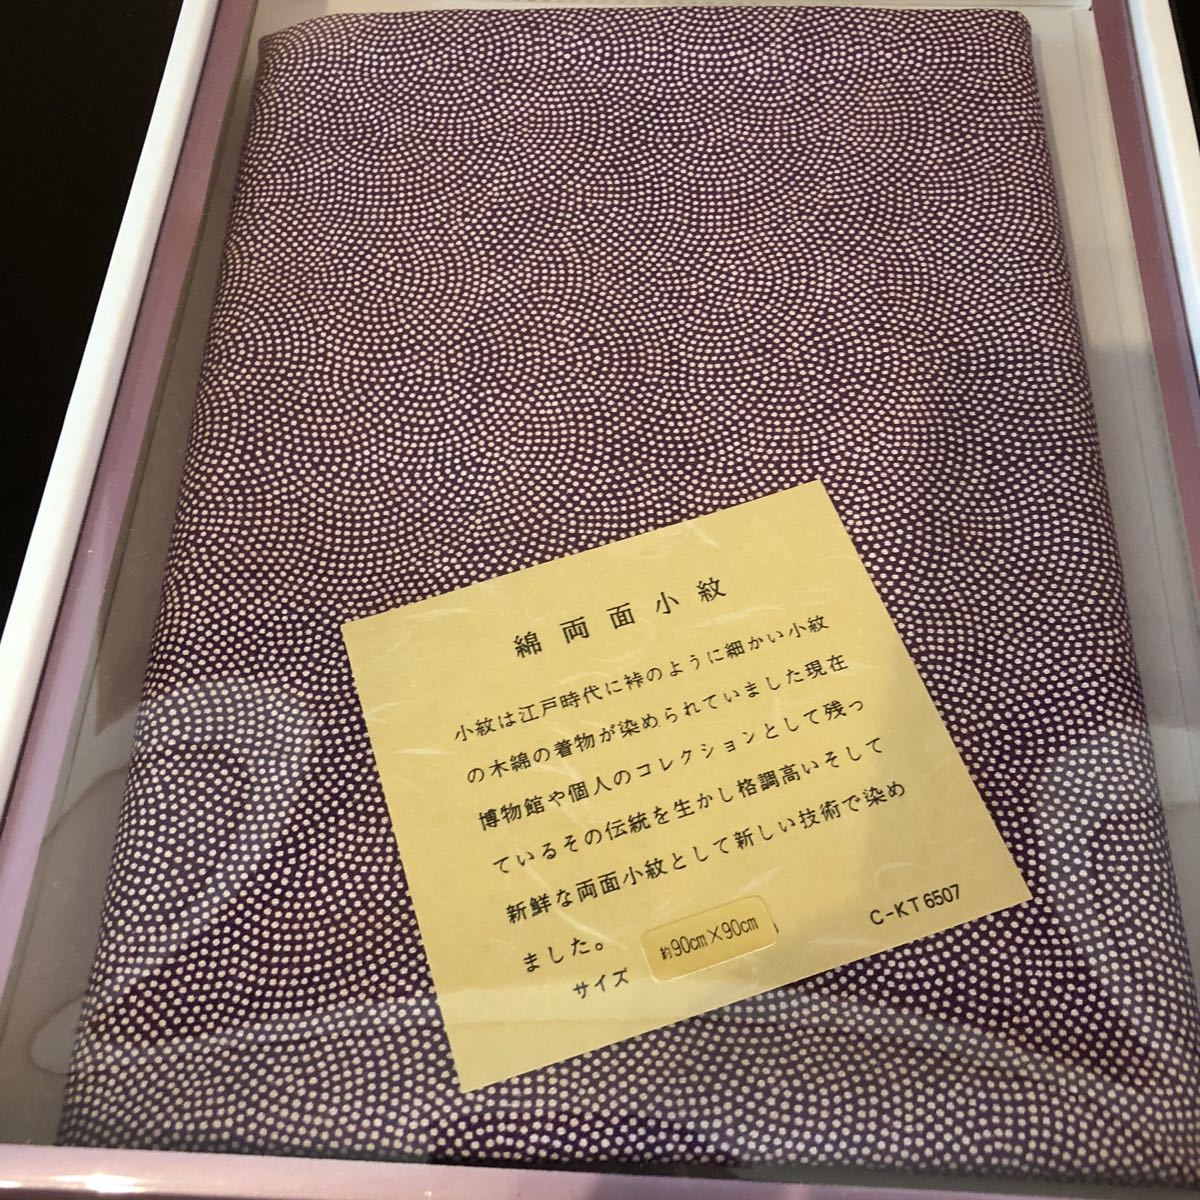 綿両面小紋
小紋は江戸時代に裃のように細かい小紋
の木綿の着物が染められていました現在
博物館や個人のコレクションとして残っ
ているその伝統を生かし格調高いそして
新鮮な両面小紋として新しい技術で染め
ました。
サイズ 約90cm×90cm
C-KT6507